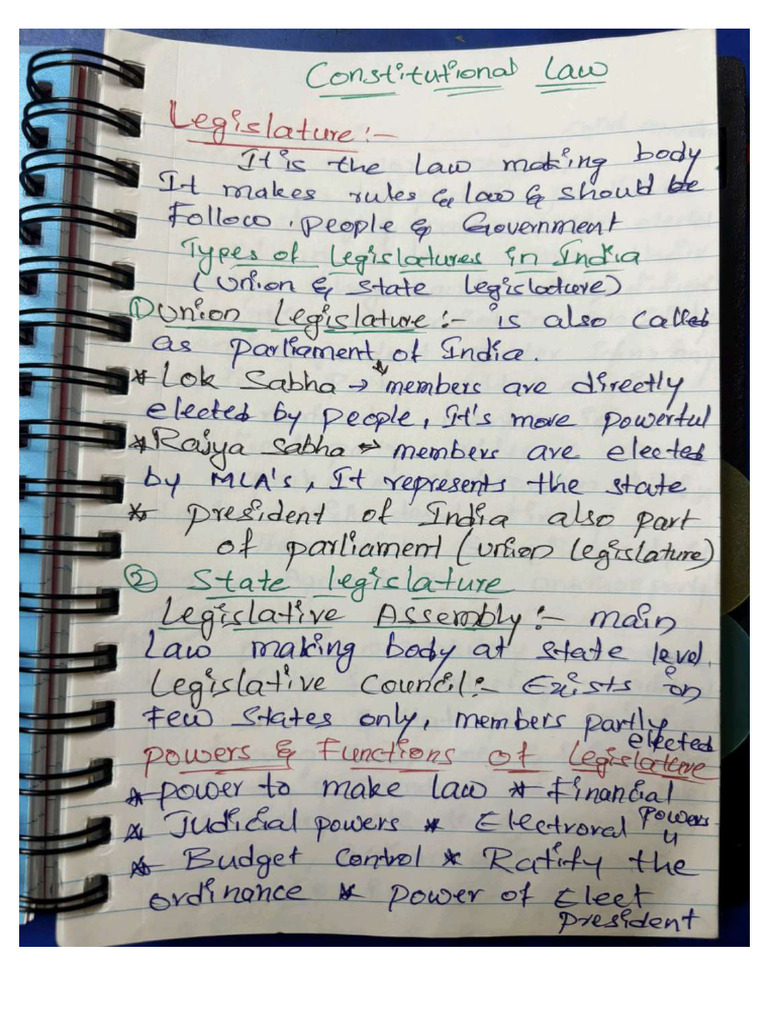 Constitutional Law
Legislature :-
It is the law making body
It makes rules & law & should be
Follow . people & Government
Types of Legislatures in India
(Union & State Legislature)
① Union Legislature :- is also called
as parliament of India.
* Lok Sabha → members are directly
elected by people, It's more powerful
* Rajya Sabha → members are elected
by MLA's, It represents the state
* president of India also part
of parliament (union legislature)
② State legislature
Legislative Assembly :- main
law making body at state level.
Legislative Council :- Exists in
few states only, members partly
elected
powers & Functions of Legislature
* power to make law * financial
powers
* Judicial powers * Electroral
* Budget control * Ratify the
ordinance * power of Elect
president